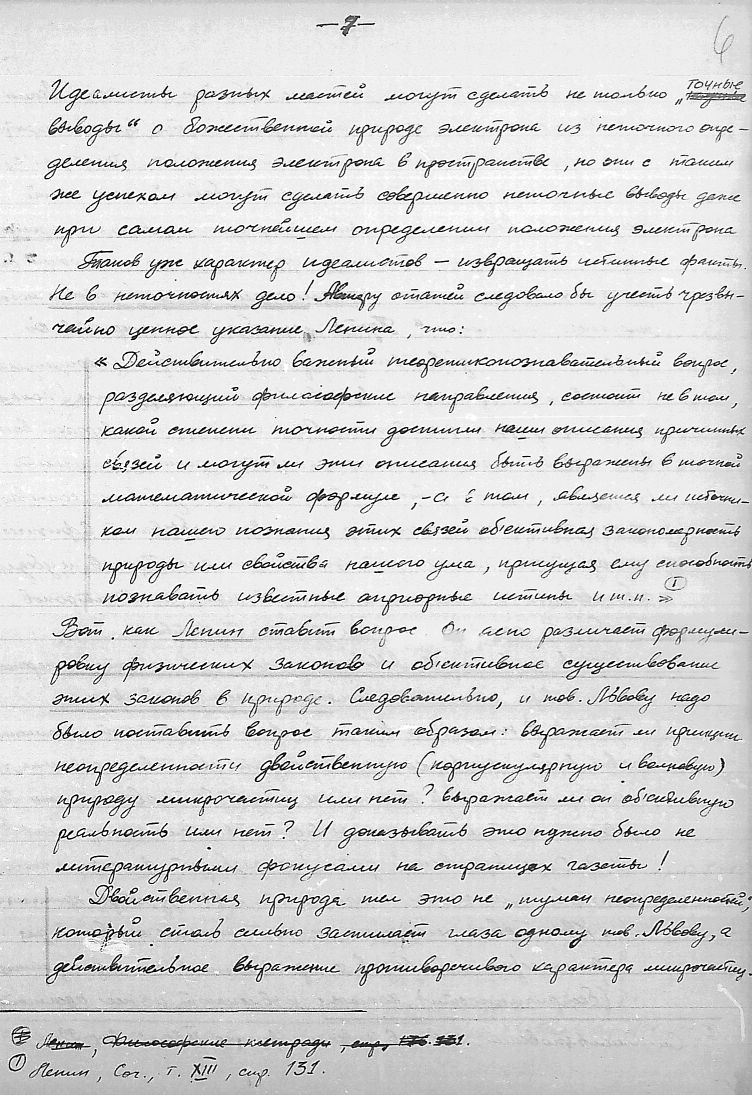 — 7 —
6
Идеалисты разных мастей могут сделать не только „точные
выводы“ о божественной природе электрона из неточного опре-
деления положения электрона в пространстве, но они с таким
же успехом могут сделать совершенно неточные выводы даже
при самом точнейшем определении положения электрона
Таков уж характер идеалистов – извращать истинные факты.
Не в неточностях дело! Автору статей следовало бы учесть чрезвы-
чайно ценное указание Ленина, что:
« Действительно важный теоретикопознавательный вопрос,
разделяющий философские направления, состоит не в том,
какой степени точности достигли наши описания причинных
связей и могут ли эти описания быть выражены в точной
математической формуле, – а в том, является ли источни-
ком нашего познания этих связей объективная закономерность
природы или свойства нашего ума, присущая ему способность
познавать известные априорные истины и т.п. » ①
Вот, как Ленин ставит вопрос. Он ясно различает формули-
ровку физических законов и объективное существование
этих законов в природе. Следовательно, и тов. Львову надо
было поставить вопрос таким образом: выражает ли принцип
неопределенности двойственную (корпускулярную и волновую)
природу микрочастиц или нет? Выражает ли он объективную
реальность или нет? И доказывать это нужно было не
литературными фокусами на страницах газеты!
Двойственная природа тел это не „туман неопределенностей“,
который столь сильно застилает глаза одному тов. Львову, а
действительное выражение противоречивого характера микрочастиц.
Ленин, Философские тетради, стр. 131.
① Ленин, Соч., т. XIII, стр. 131.